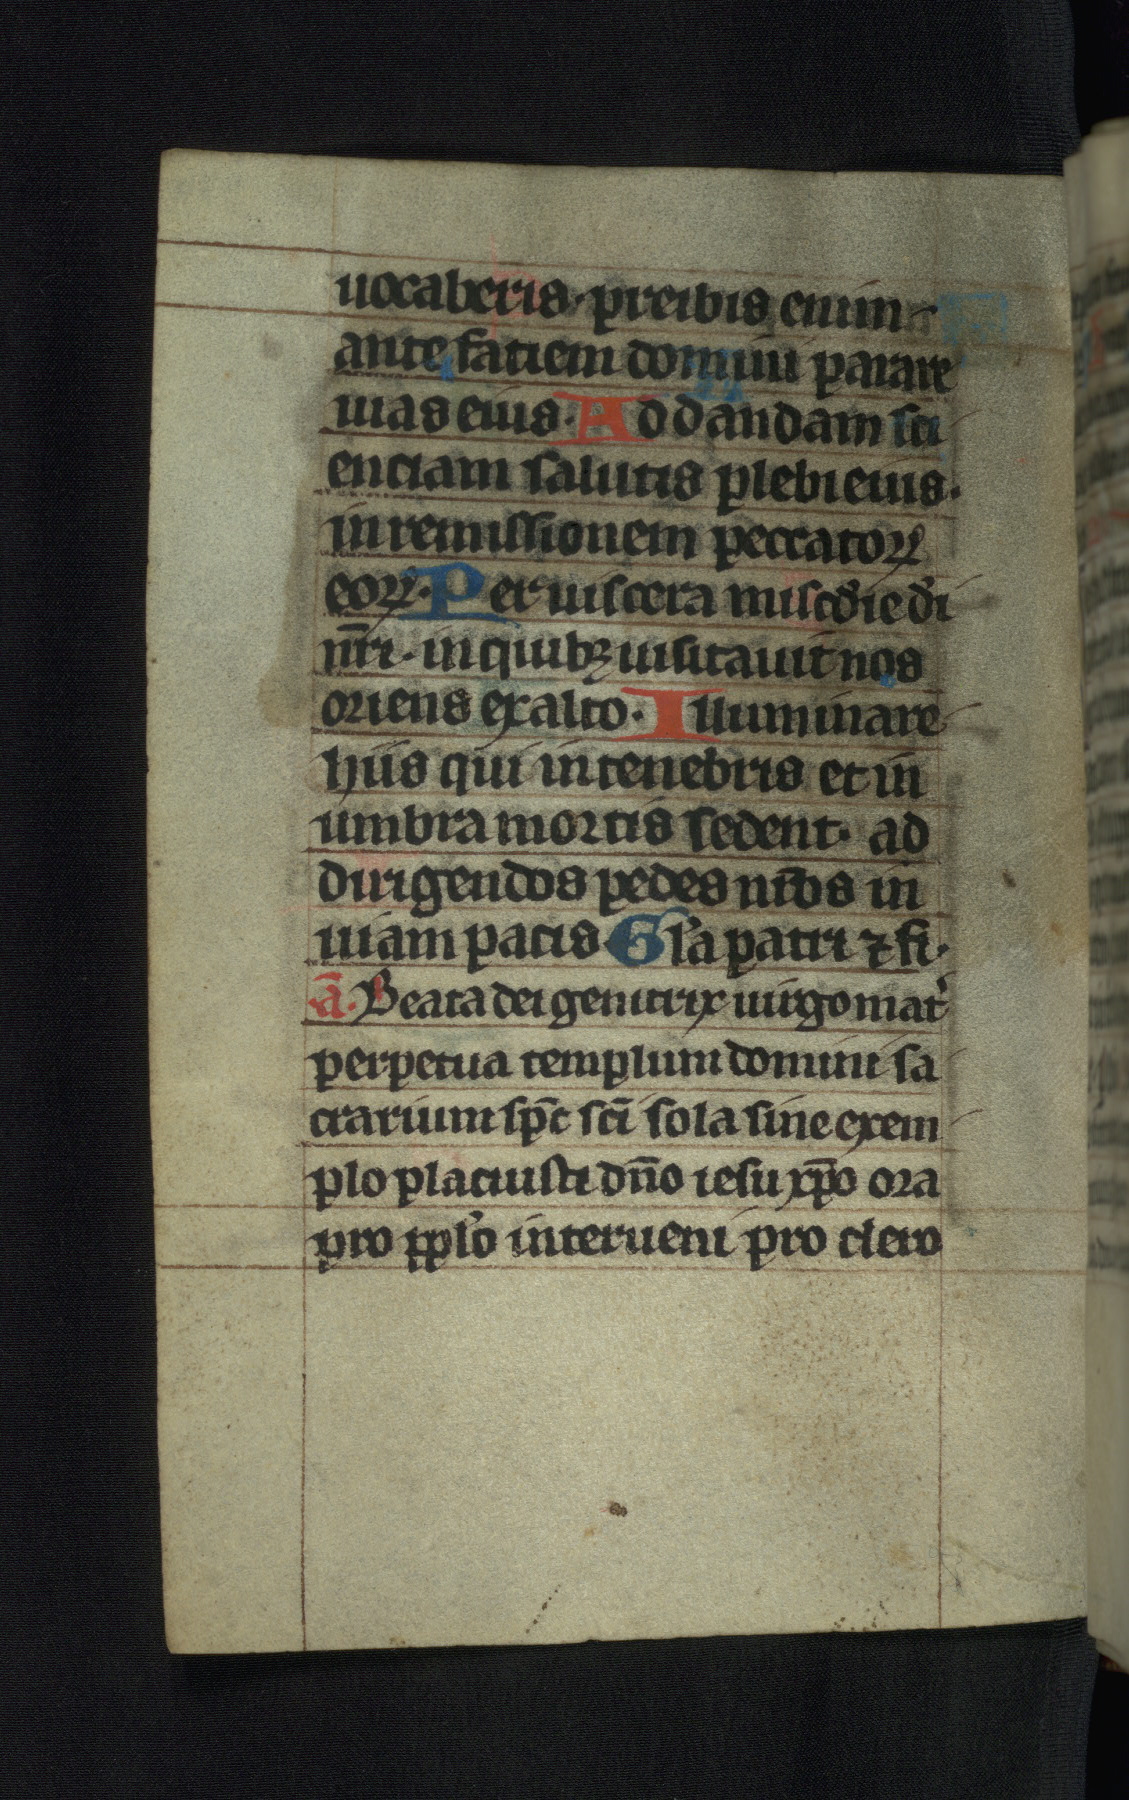 uocaberis·preibis enim
ante fatiem domini parare
uias eius· Ad dandam sci
enciam salutis plebi eius·
in remissionem peccatoꝝ
eoꝝ· Per uiscera miscd̓ie d̓i
nr̄i· in quibꝫ uisitauit nos
oriens ex alto· Illuminare
hiis qui in tenebris et in
umbra mortis sedent· ad
dirigendos pedes nr̄os in
uiam pacis· Gl̓a patri ⁊ fi·
ā· Beata dei genitrix uirgo mat̓
perpetua templum domini sa
crarium sp̄c sc̄i sola sine exem
plo placuisti dn̄o iesu xp̄o ora
pro ppl̓o interueni pro clero